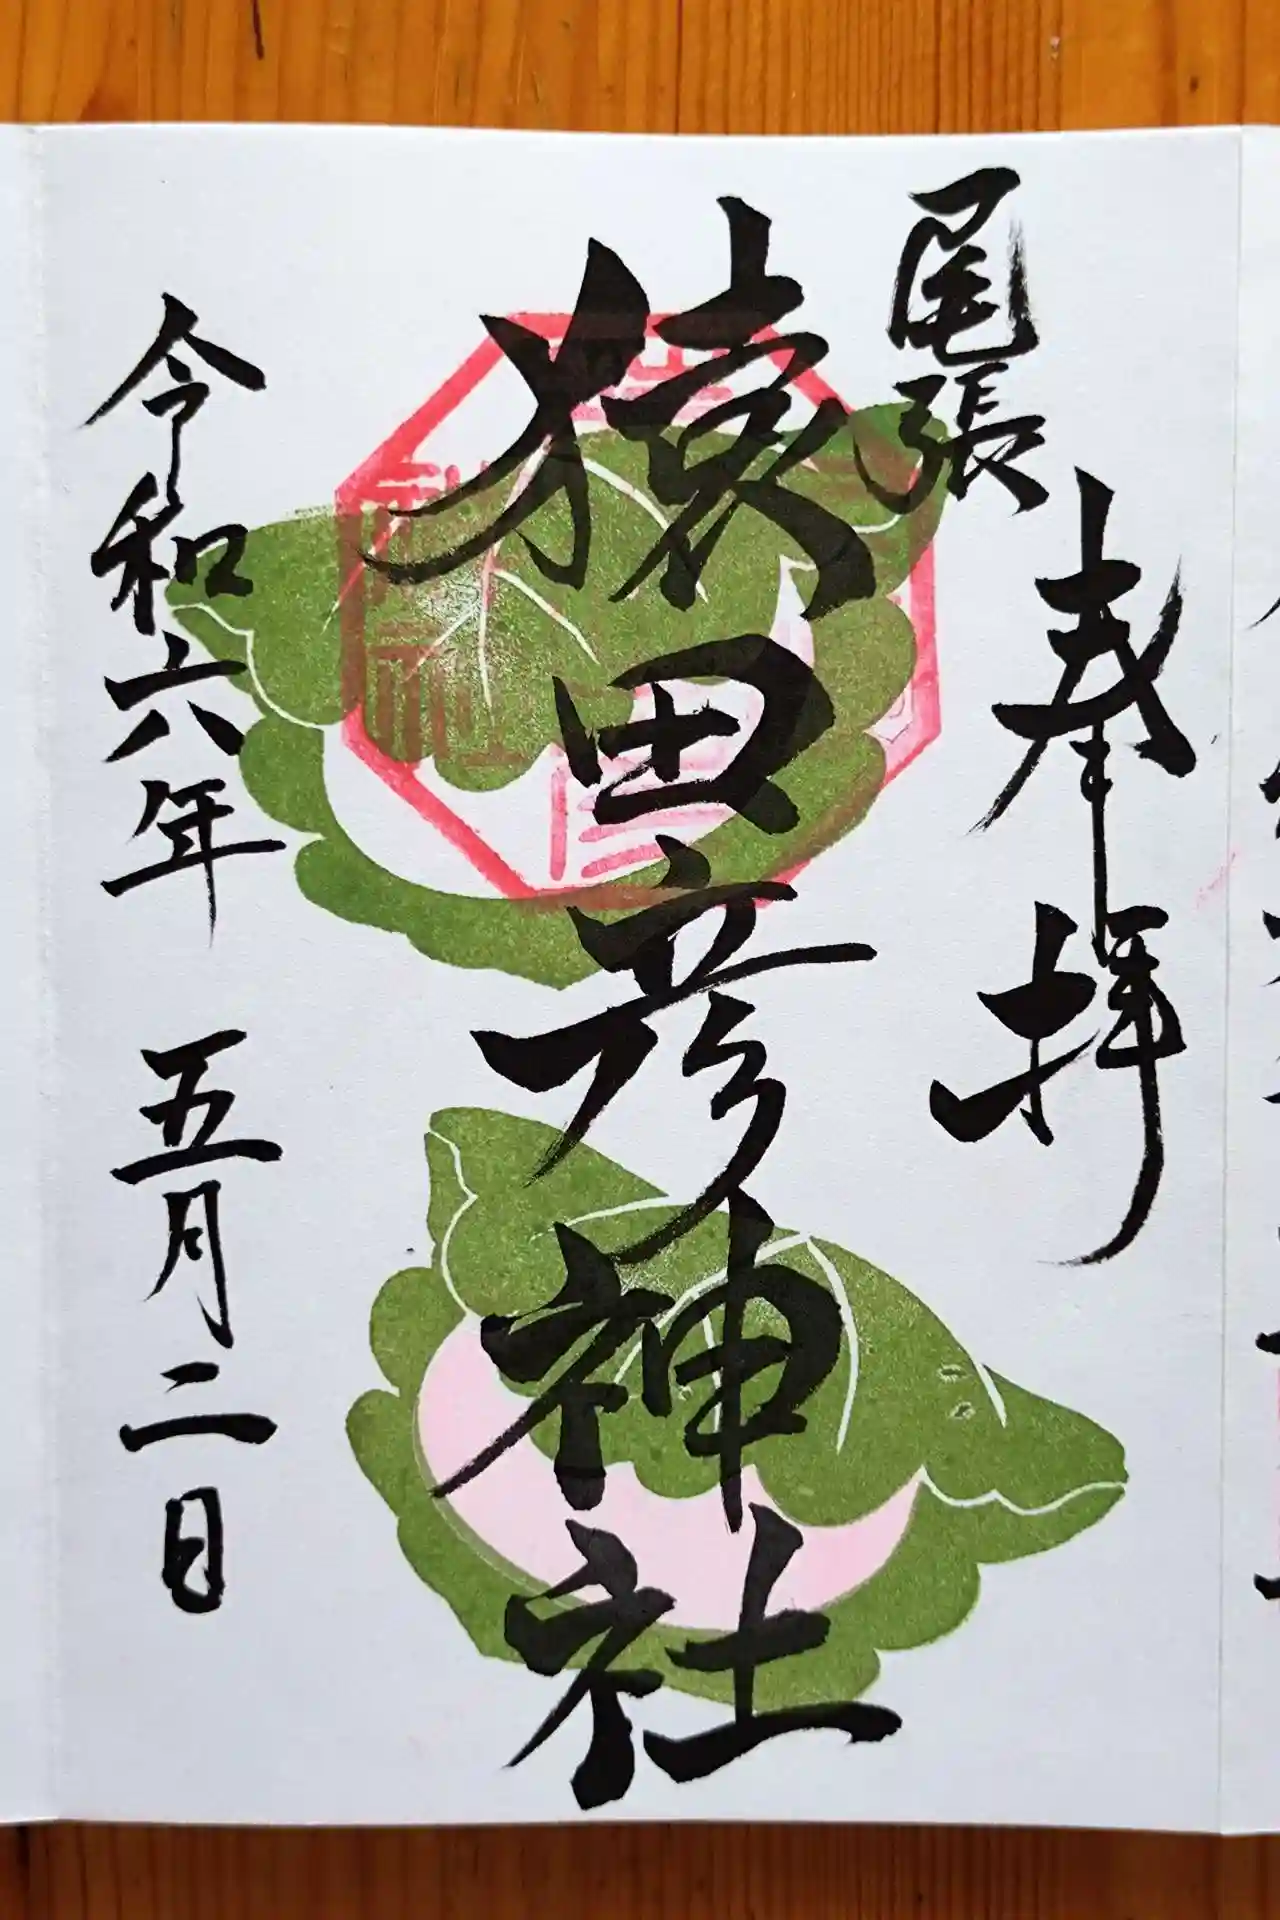 尾張
奉拝
猿田彦神社
令和六年 五月二日